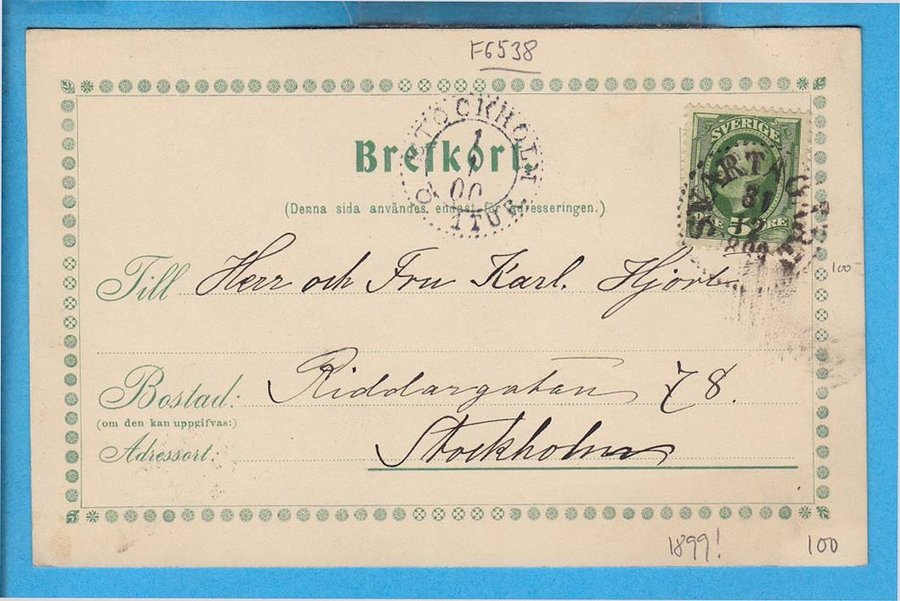 F6538
SVERIGE
STOCKHOLM
1
1
00
1 TUR.
Brefkort.
(Denna sida användes endast för adresseringen.)
SVARTÅ
31
12
Till Herr och Fru Karl. Hjort
100
Bostad: Riddargatan 78.
(om den kan uppgifvas:)
Adressort: Stockholm
1899!
100